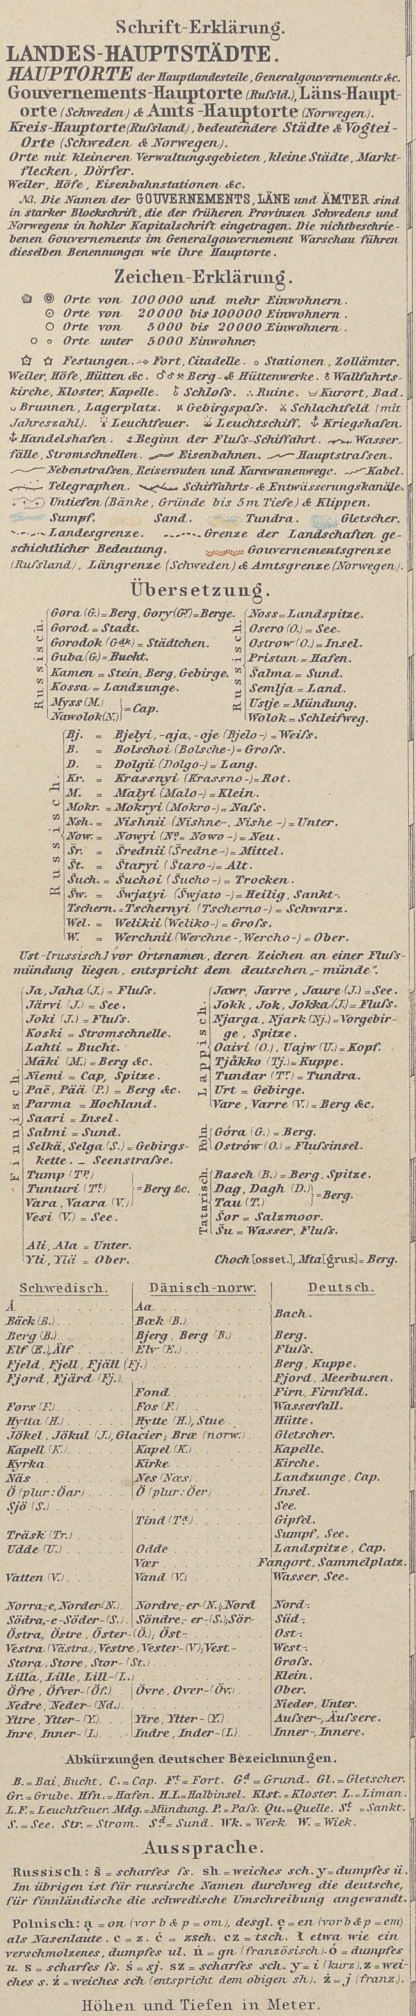 Schrift-Erklärung.
LANDES-HAUPTSTÄDTE.
HAUPTORTE der Hauptlandesteile, Generalgouvernements &c.
Gouvernements-Hauptorte (Rufsld.), Läns-Haupt-
orte (Schweden) & Amts-Hauptorte (Norwegen).
Kreis-Hauptorte (Rufsland), bedeutendere Städte & Vogtei-
Orte (Schweden & Norwegen).
Orte mit kleineren Verwaltungsgebieten, kleine Städte, Markt-
flecken, Dörfer.
Weiler, Höfe, Eisenbahnstationen &c.
NB. Die Namen der GOUVERNEMENTS, LÄNE und ÄMTER sind
in starker Blockschrift, die der früheren Provinzen Schwedens und
Norwegens in hohler Kapitalschrift eingetragen. Die nichtbeschrie-
benen Gouvernements im Generalgouvernement Warschau führen
dieselben Benennungen wie ihre Hauptorte.
Zeichen-Erklärung.
Orte von 100000 und mehr Einwohnern.
Orte von 20000 bis 100000 Einwohnern.
Orte von 5000 bis 20000 Einwohnern.
Orte unter 5000 Einwohner.
Festungen. Fort, Citadelle. Stationen, Zollämter,
Weiler, Höfe, Hütten &c. Berg- & Hüttenwerke. Wallfahrts-
kirche, Kloster, Kapelle. Schlofs. Ruine. Kurort, Bad.
Brunnen, Lagerplatz. Gebirgspafs. Schlachtfeld (mit
Jahreszahl). Leuchtfeuer. Leuchtschiff. Kriegshafen.
Handelshafen. Beginn der Flufs-Schiffahrt. Wasser-
fälle, Stromschnellen. Eisenbahnen. Hauptstrafsen.
Nebenstrafsen, Reiserouten und Karawanenwege. Kabel.
Telegraphen. Schiffahrts- & Entwässerungskanäle.
Untiefen (Bänke, Gründe bis 5m Tiefe) & Klippen.
Sumpf. Sand. Tundra. Gletscher.
Landesgrenze. Grenze der Landschaften ge-
schichtlicher Bedeutung. Gouvernementsgrenze
(Rufsland), Längrenze (Schweden) & Amtsgrenze (Norwegen).
Übersetzung.
Russisch.
Gora (G.) = Berg, Gory (Gy.) = Berge.
Gorod = Stadt.
Gorodok (Gdk.) = Städtchen.
Guba (G.) = Bucht.
Kamen = Stein, Berg, Gebirge.
Kossa = Landzunge.
Myss (M.)
Nawolok (N.) = Cap.
Russisch.
Noss = Landspitze.
Osero (O.) = See.
Ostrow (O.) = Insel.
Pristan = Hafen.
Salma = Sund.
Semlja = Land.
Ustje = Mündung.
Wolok = Schleifweg.
Russisch.
Bj. = Bjelyi, -aja, -oje (Bjelo-) = Weifs.
B. = Bolschoi (Bolsche-) = Grofs.
D. = Dolgii (Dolgo-) = Lang.
Kr. = Krassnyi (Krassno-) = Rot.
M. = Malyi (Malo-) = Klein.
Mokr. = Mokryi (Mokro-) = Nafs.
Nsh. = Nishnii (Nishne-, Nishe-) = Unter.
Now. = Nowyi (No. = Nowo-) = Neu.
Sr. = Srednii (Sredne-) = Mittel.
St. = Staryi (Staro-) = Alt.
Such. = Suchoi (Sucho-) = Trocken.
Sw. = Swjatyi (Swjato-) = Heilig, Sankt-.
Tschern. = Tschernyi (Tscherno-) = Schwarz.
Wel. = Welikii (Weliko-) = Grofs.
W. = Werchnii (Werchne-, Wercho-) = Ober.
Ust- [russisch] vor Ortsnamen, deren Zeichen an einer Flufs-
mündung liegen, entspricht dem deutschen „-münde".
Finnisch.
Ja, Jaha (J.) = Flufs.
Järvi (J.) = See.
Joki (J.) = Flufs.
Koski = Stromschnelle.
Lahti = Bucht.
Mäki (M.) = Berg &c.
Niemi = Cap, Spitze.
Paë, Pää (P.) = Berg &c.
Parma = Hochland.
Saari = Insel.
Salmi = Sund.
Selkä, Selga (S.) = Gebirgs-
kette. _ Seenstrafse.
Tump (Tp.)
Tunturi (Tt.) = Berg &c.
Vara, Vaara (V.)
Vesi (V.) = See.
Ali, Ala = Unter.
Yli, Ylä = Ober.
Lappisch.
Jawr, Javre, Jaure (J.) = See.
Jokk, Jok, Jokka (J.) = Flufs.
Njarga, Njark (Nj.) = Vorgebir-
ge, Spitze.
Oaivi (O.), Uajw (U.) = Kopf.
Tjåkko (Tj.) = Kuppe.
Tundar (Tr.) = Tundra.
Urt = Gebirge.
Vare, Varre (V.) = Berg &c.
Poln.
Góra (G.) = Berg.
Ostrów (O.) = Flufsinsel.
Tatarisch.
Basch (B.) = Berg, Spitze.
Dag, Dagh (D.) = Berg.
Tau (T.)
Sor = Salzmoor.
Su = Wasser, Flufs.
Choch [osset.], Mta [grus] = Berg.
Schwedisch. Dänisch-norw. Deutsch.
Å Aa Bach.
Bäck (B.) Bæk (B.)
Berg (B.) Bjerg, Berg (B.) Berg.
Elf (E.), Älf Elv (E.) Flufs.
Fjeld, Fjell, Fjäll (Fj.) Berg, Kuppe.
Fjord, Fjärd (Fj.) Fjord, Meerbusen.
Fond Firn, Firnfeld.
Fors (F.) Fos (F.) Wasserfall.
Hytta (H.) Hytte (H.), Stue Hütte.
Jökel, Jökul (J.), Glacier; Bræ (norw.) Gletscher.
Kapell (K.) Kapel (K.) Kapelle.
Kyrka Kirke Kirche.
Näs Nes (Næs) Landzunge, Cap.
Ö (plur: Öar) Ö (plur: Öer) Insel.
Sjö (S.) See.
Tind (Td.) Gipfel.
Träsk (Tr.) Sumpf, See.
Udde (U.) Odde Landspitze, Cap.
Vær Fangort, Sammelplatz.
Vatten (V.) Vand (V.) Wasser, See.
Norra,-e, Norder-(N.) Nordre,-er-(N.); Nord Nord-.
Södra,-e-Söder-(S.) Söndre,-er-(S.); Sör- Süd-.
Östra, Östre, Öster-(Ö.), Öst- Ost-.
Vestra (Västra), Vestre, Vester-(V.); Vest- West-.
Stora, Store, Stor-(St.) Grofs.
Lilla, Lille, Lill-(L.) Klein.
Öfre, Öfver-(Öf.) Övre, Over-(Öv.) Ober.
Nedre, Neder-(Nd.) Nieder, Unter.
Yttre, Ytter-(Y.) Ytre, Ytter-(Y.) Aufser-, Äufsere.
Inre, Inner-(I.) Indre, Inder-(I.) Inner-, Innere.
Abkürzungen deutscher Bezeichnungen.
B. = Bai, Bucht. C. = Cap. Ft. = Fort. Gd. = Grund. Gl. = Gletscher.
Gr. = Grube. Hfn. = Hafen. H.I. = Halbinsel. Klst. = Kloster. L. = Liman.
L.F. = Leuchtfeuer. Mdg. = Mündung. P. = Pafs. Qu. = Quelle. St. = Sankt.
S. = See. Str. = Strom. Sd. = Sund. Wk. = Werk W. = Wiek.
Aussprache.
Russisch: s̄ = scharfes fs. sh = weiches sch. y = dumpfes ü.
Im übrigen ist für russische Namen durchweg die deutsche,
für finnländische die schwedische Umschreibung angewandt.
Polnisch: ą = on (vor b & p = om), desgl. ę = en (vor b & p = em)
als Nasenlaute. c = z. ć = zsch. cz = tsch. ł etwa wie ein
verschmolzenes, dumpfes ul. ń = gn (französisch). ó = dumpfes
u. s = scharfes fs. ś = sj. sz = scharfes sch. y = i (kurz). z = wei-
ches s. ż = weiches sch (entspricht dem obigen sh). ź = j (franz.).
Höhen und Tiefen in Meter.